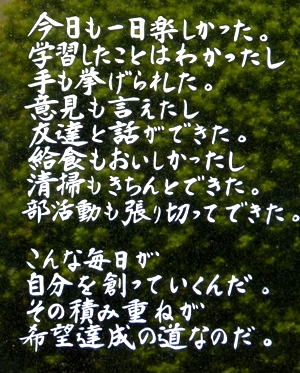 今日も一日楽しかった。
学習したことはわかったし
手も挙げられた。
意見も言えたし
友達と話ができた。
給食もおいしかったし
清掃もきちんとできた。
部活動も張り切ってできた。
こんな毎日が
自分を創っていくんだ。
その積み重ねが
希望達成の道なのだ。